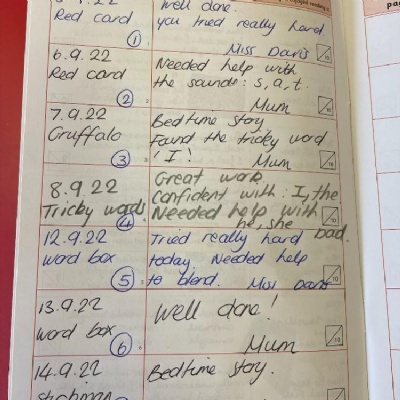 .22
Well done.
Red card
you tried really hard.
1
Miss Davis
6.9.22
Red card
Needed help with
the sounds: s, a, t.
2
Mum
7.9.22
Gruffalo
Bedtime story.
Found the tricky word
'I'!
3
Mum
8.9.22
Tricky words
Great work
Confident with: I, the
Needed help with
he, she
4
12.9.22
word box
Tried really hard
today. Needed help
to blend. Miss Davis
5
Dad.
13.9.22
word box
Well done!
6
Mum
14.9.22
stickman
Bedtime story.